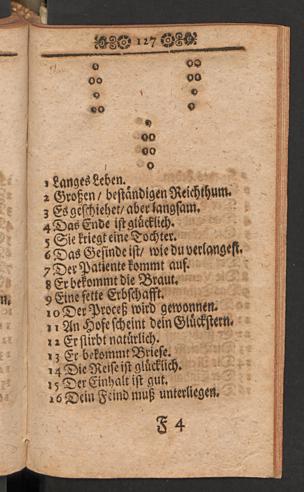 127
1 Langes Leben.
2 Großen / beständigen Reichthum.
3 Es geschiehet / aber langsam.
4 Das Ende ist glücklich.
5 Sie kriegt eine Tochter.
6 Das Gesinde ist / wie du verlangest.
7 Der Patiente kommt auf.
8 Er bekommt die Braut.
9 Eine fette Erbschafft.
10 Der Proceß wird gewonnen.
11 An Hofe scheint dein Glückstern.
12 Er stirbt natürlich.
13 Er bekommt Briefe.
14 Die Reise ist glücklich.
15 Der Einhalt ist gut.
16 Dein Feind muß unterliegen.
F 4